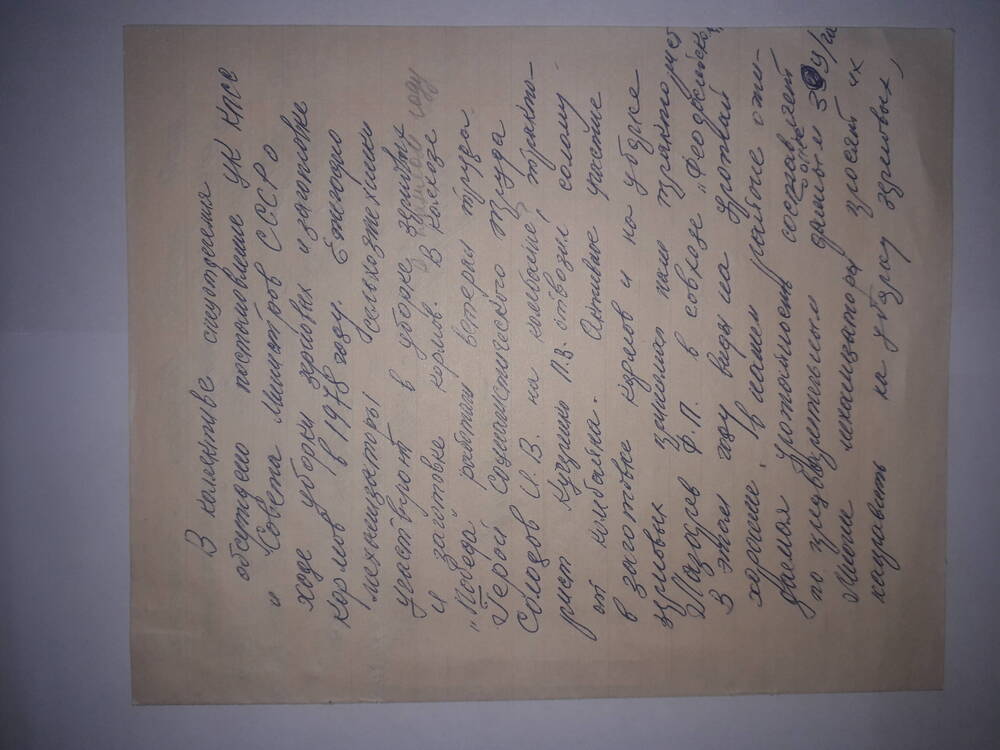 В коллективе спецотделения
обсуждено постановление ЦК КПСС
и Совета Министров СССР о
ходе уборки зерновых и заготовке
кормов в 1978 году. Ежегодно
механизаторы сельхозтехники
участвуют в уборке зерновых
в прошлом году
и заготовке кормов. В колхозе
„Победа" работали ветеран труда
Герой Социалистического труда
Солодов И.В. на комбайне, тракто-
рист П.В. отвозил солому
от комбайна. Активное участие
в заготовке кормов и на уборке
зерновых принимал наш тракторист
Ф.П. в совхозе „Феодосийском"
В этом году виды на урожай
хорошие, в нашем районе ожи-
даемая урожайность составляет
более
по предварительным данным 30 ц/га
Многие механизаторы просят их
направить на уборку зерновых,